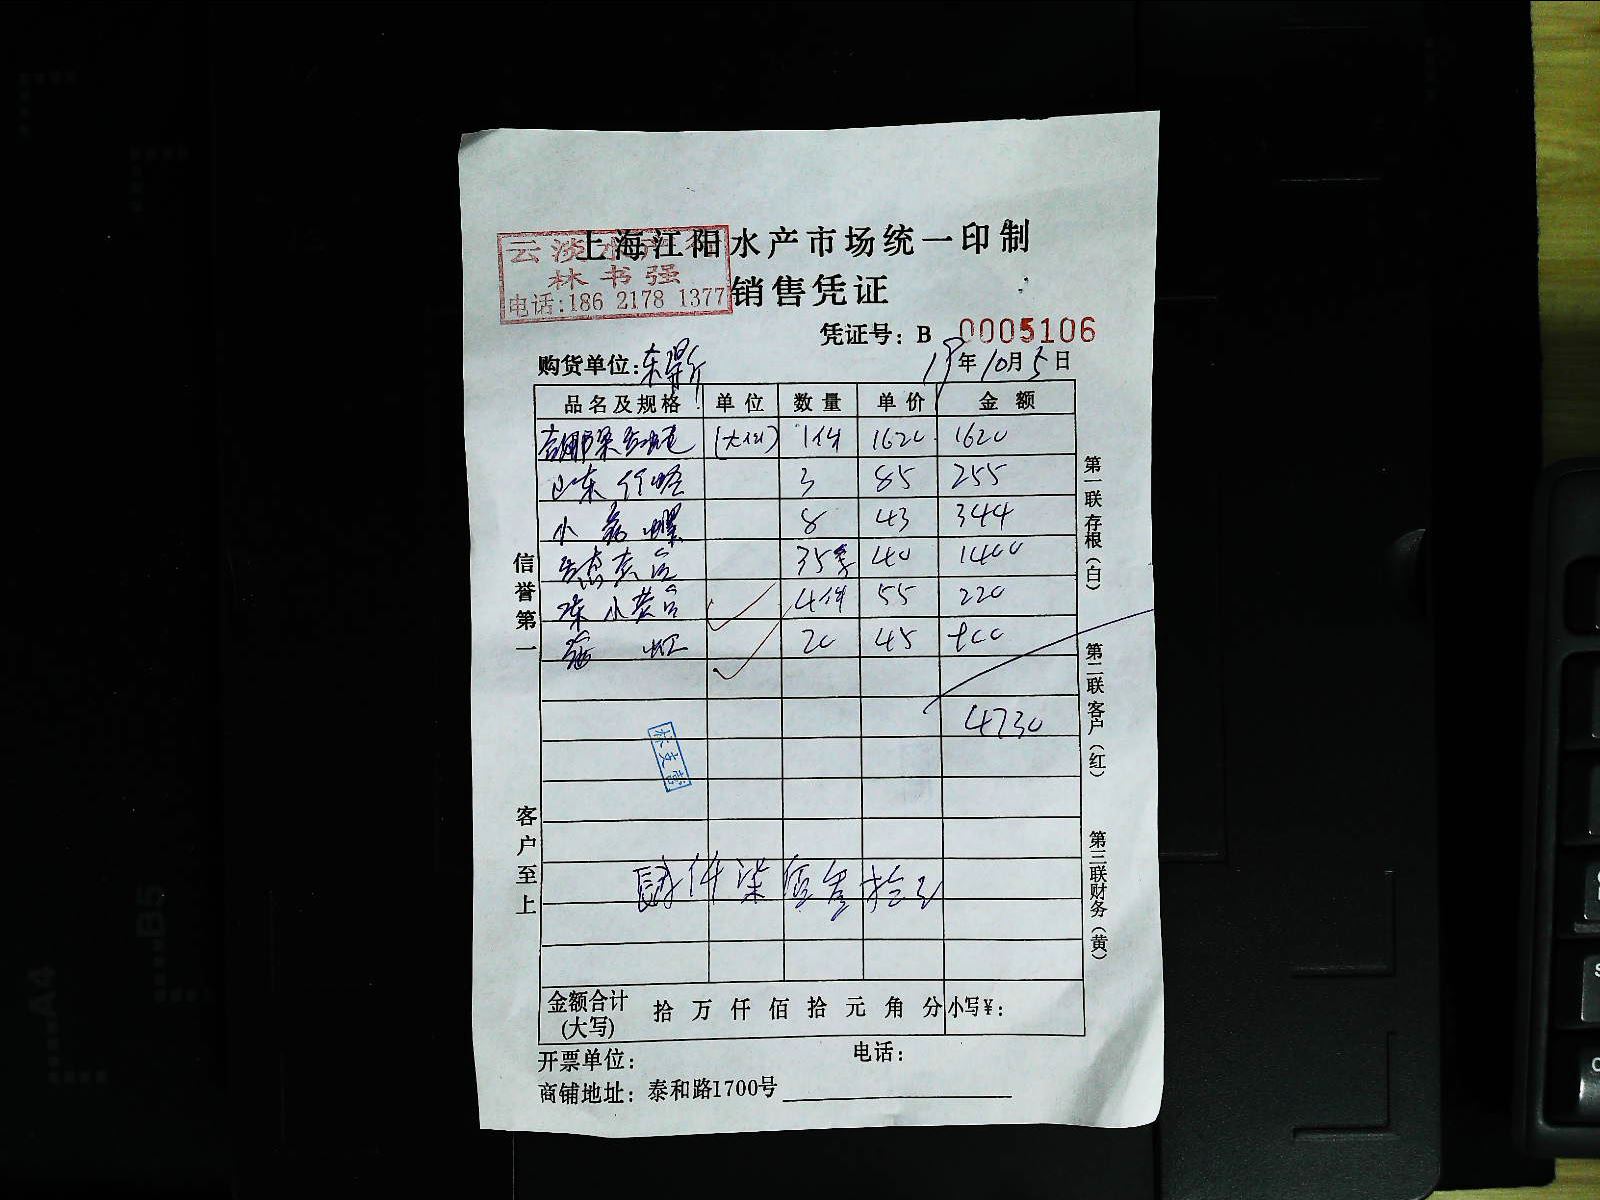 上海江阳水产市场统一印制
云淡水产行
林书强
电话:186 2178 1377
销售凭证
凭证号: B 0005106
购货单位:
19年10月5日
品名及规格 单位 数量 单价 金额
1件 1620 1620
山东 3 85 255
小 螺 8 43 344
35 40 1400
冻小黄 4件 55 220
20 45 900
4730
肆仟柒佰叁拾元
金额合计(大写) 拾 万 仟 佰 拾 元 角 分 小写¥:
开票单位: 电话:
商铺地址: 泰和路1700号
信誉第一
客户至上
第一联 存根(白)
第二联 客户(红)
第三联 财务(黄)